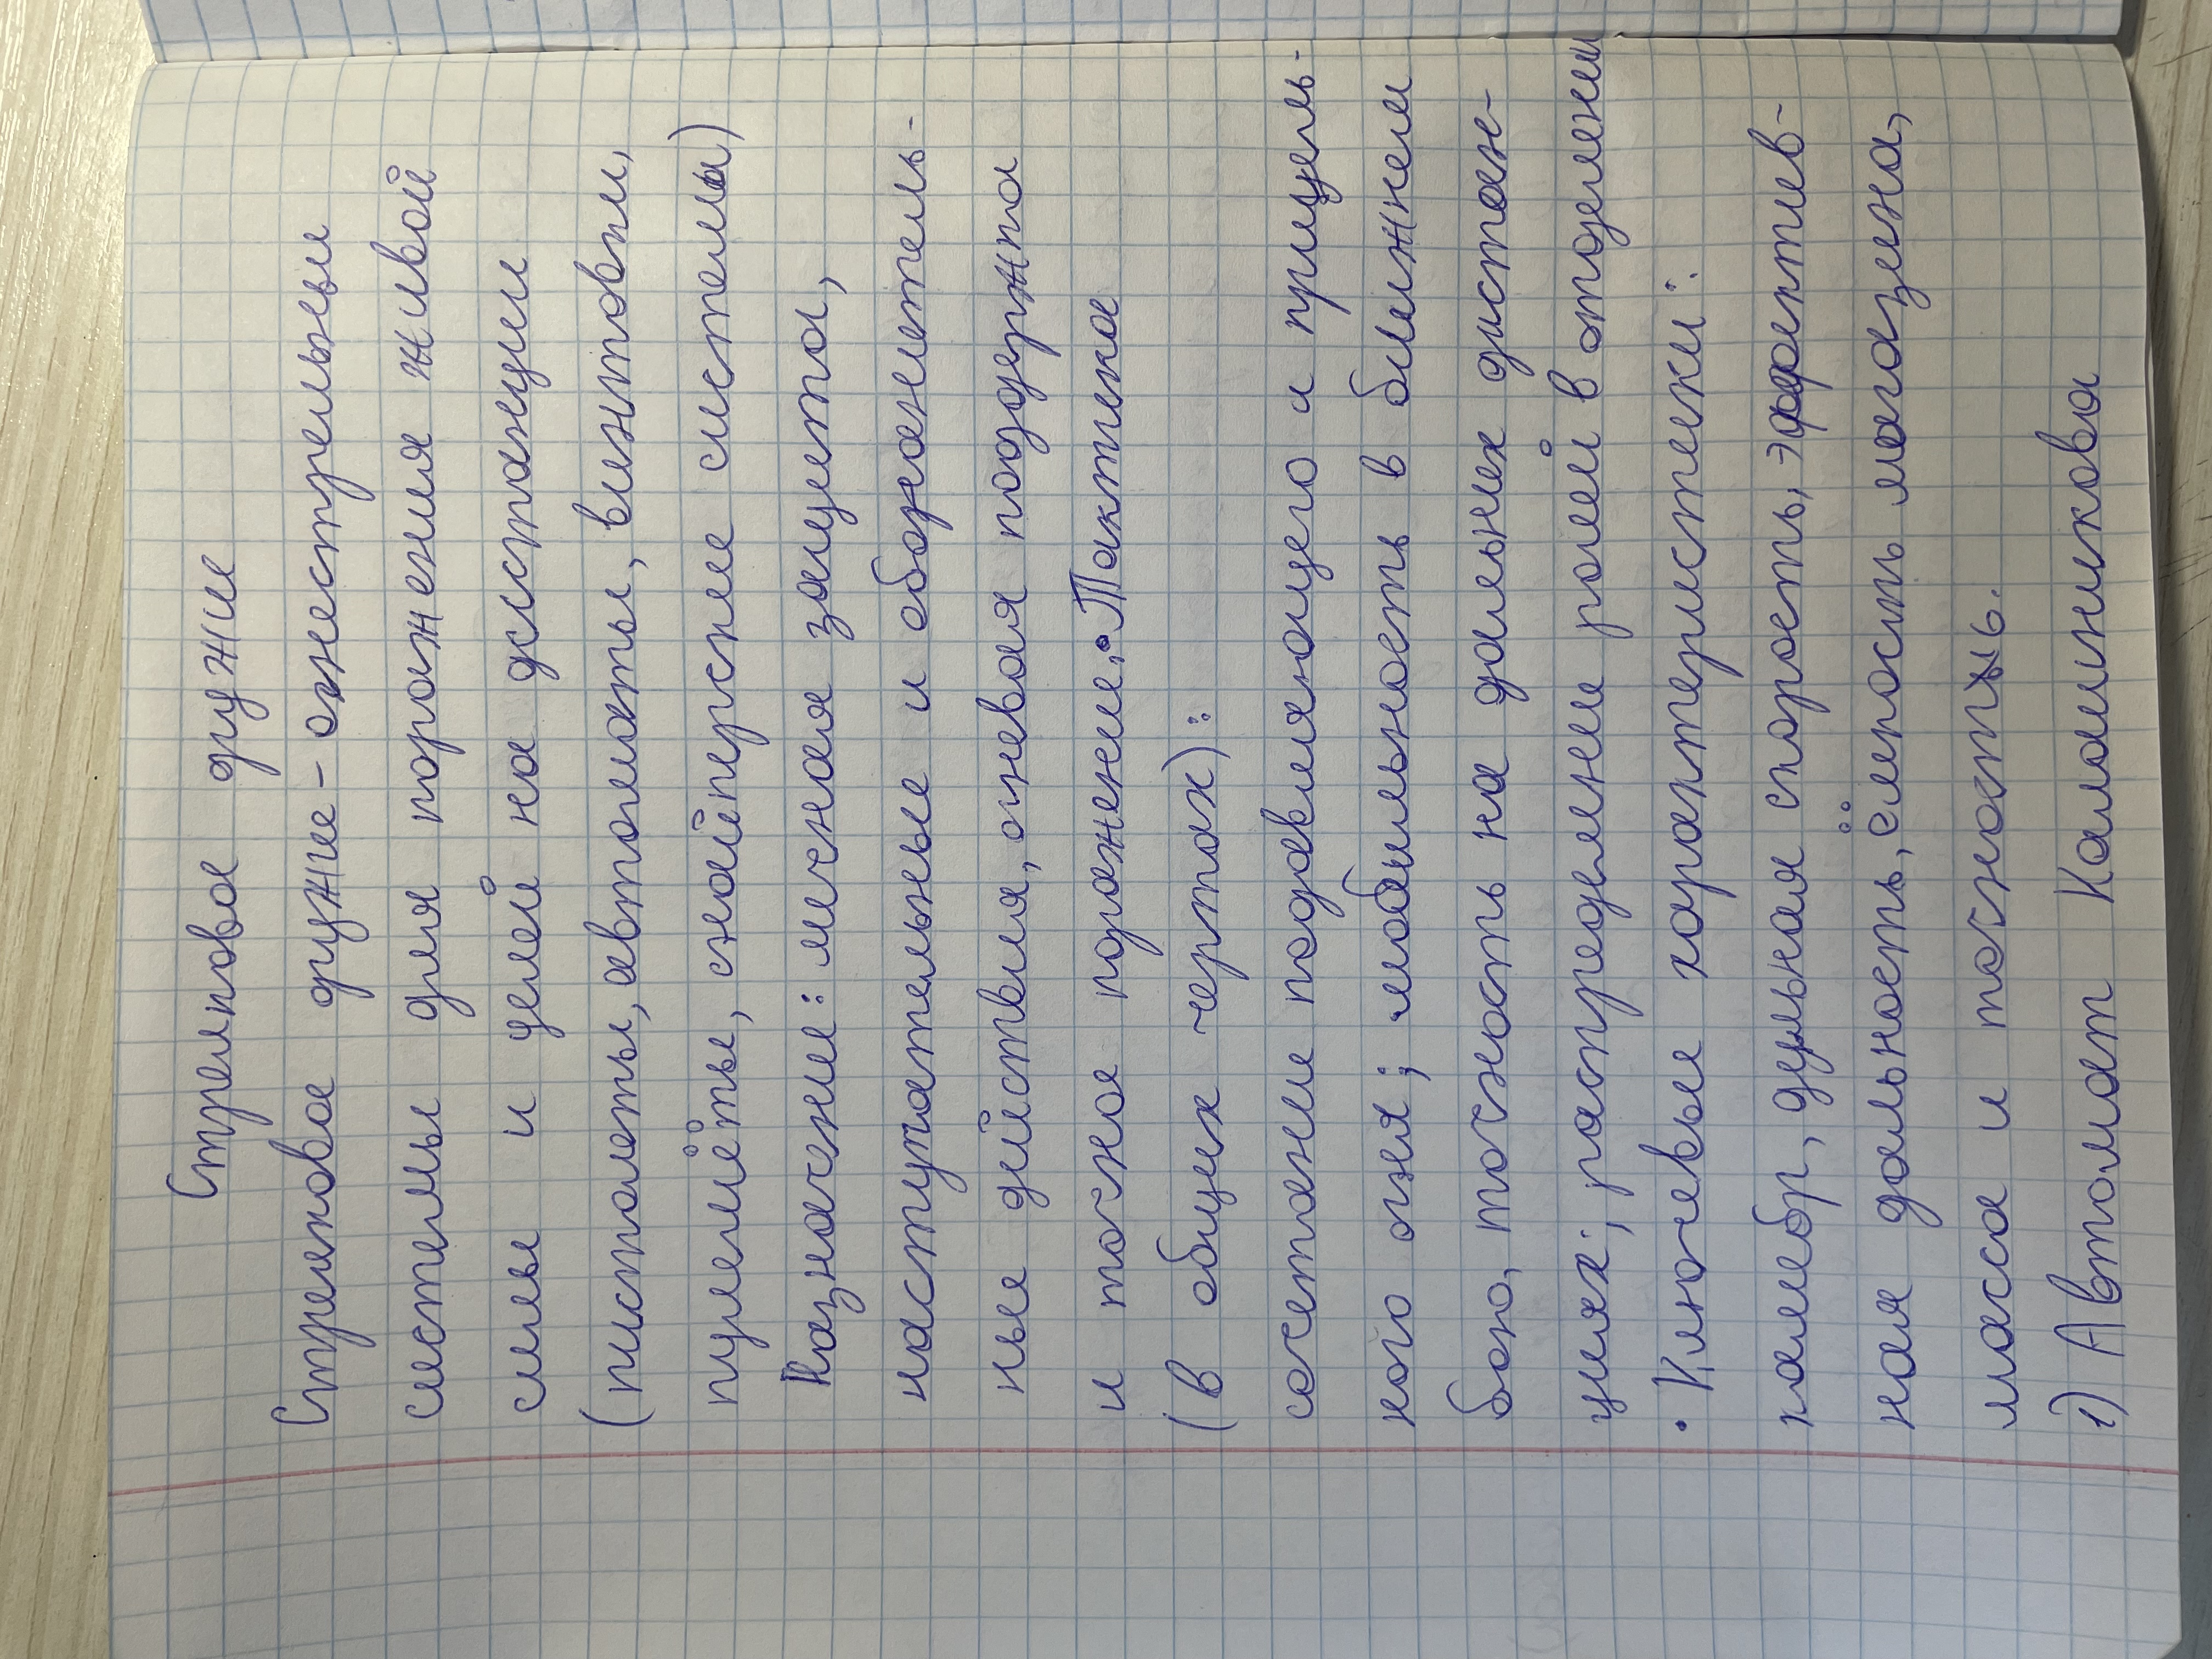 Стрелковое оружие
Стрелковое оружие - огнестрельные
системы для поражения живой
силы и целей на дистанции
(пистолеты, автоматы, винтовки,
пулемёты, снайперские системы)
Назначение: личная защита,
наступательные и оборонитель-
ные действия, огневая поддержка
и точное поражение. • Тактика
(в общих чертах):
сочетание подавляющего и прицель-
ного огня; мобильность в ближнем
бою, точность на дальних дистан-
циях; распределение ролей в отделении
• Ключевые характеристики:
калибр, дульная скорость, эффектив-
ная дальность, ёмкость магазина,
масса и точность.
1) Автомат Калашникова